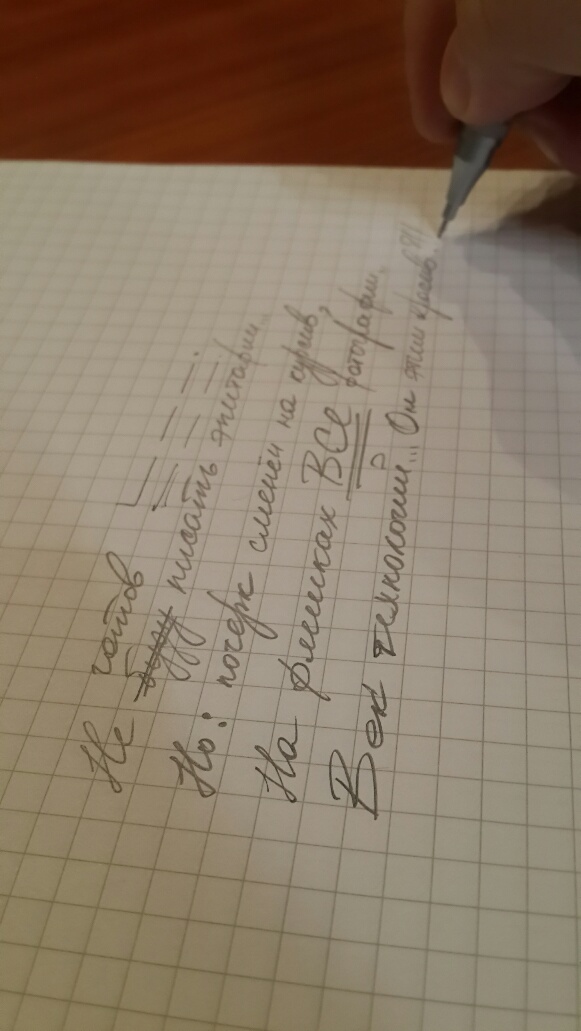 готов
Не буду писать эпитафии...
Но: почерк сменён на курсив,
На флешках ВСЕ фотографии.
Век технологии... Он этим красив?!